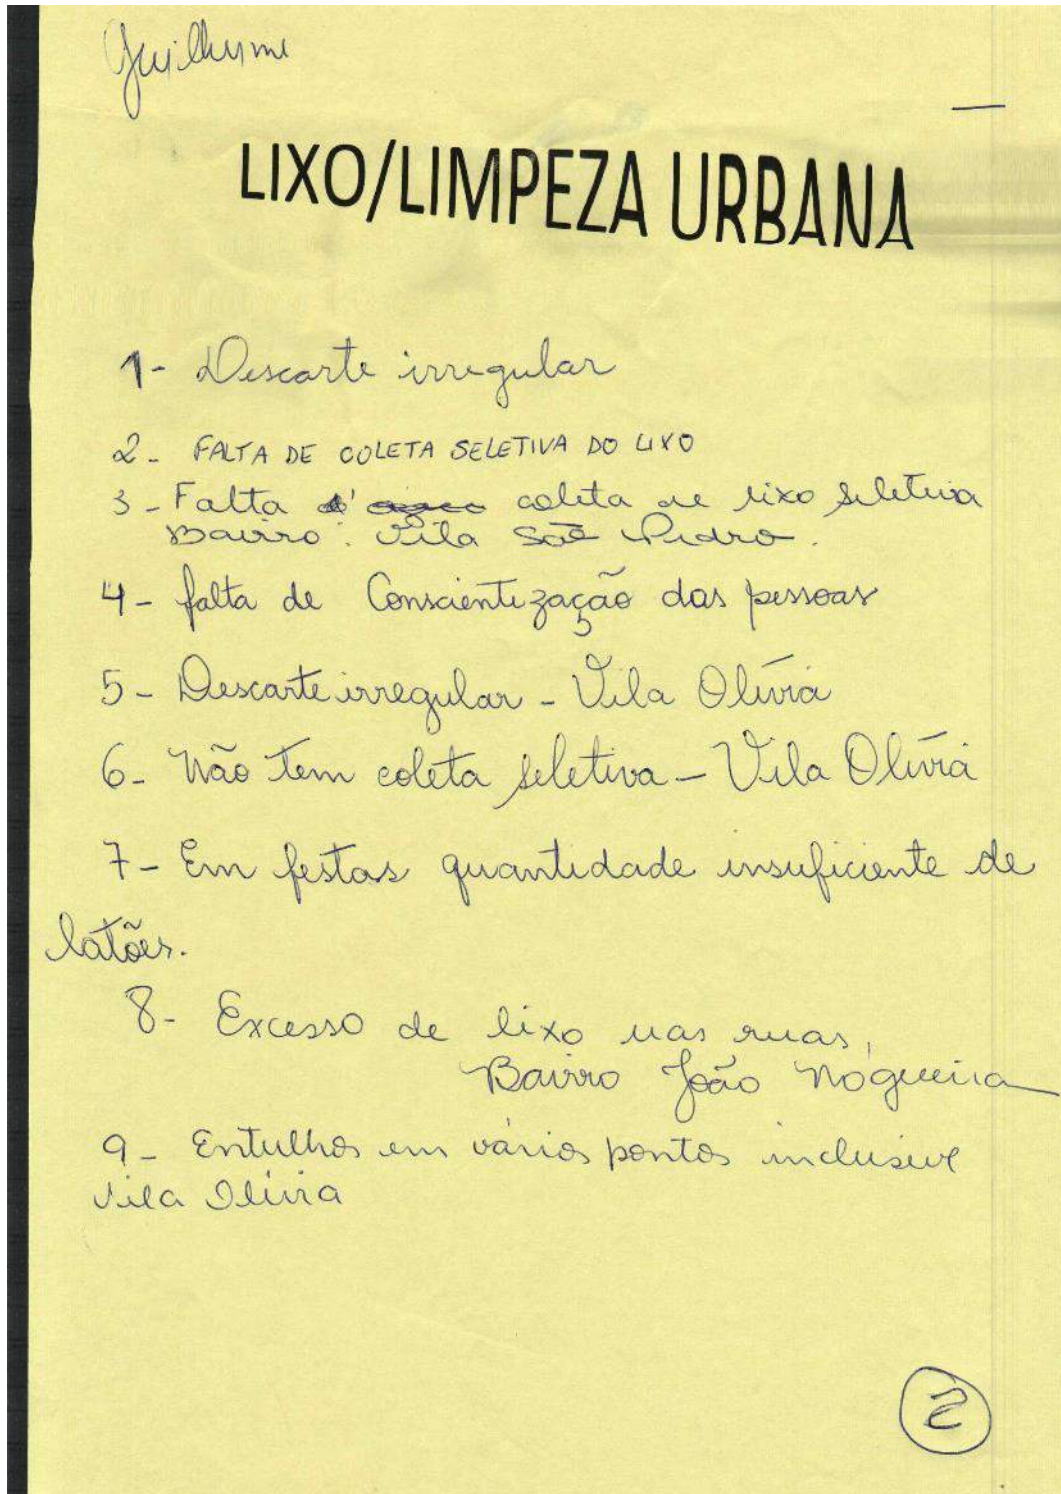 Guilherme
LIXO/LIMPEZA URBANA
1- Descarte irregular
2- FALTA DE COLETA SELETIVA DO LIXO
3- Falta coleta de lixo seletiva
Bairro: Vila São Pedro.
4- falta de Conscientização das pessoas
5- Descarte irregular - Vila Olívia
6- Não tem coleta seletiva - Vila Olívia
7- Em festas quantidade insuficiente de
latões.
8- Excesso de lixo nas ruas,
Bairro João Nogueira
9- Entulhos em vários pontos inclusive
Vila Olívia
2